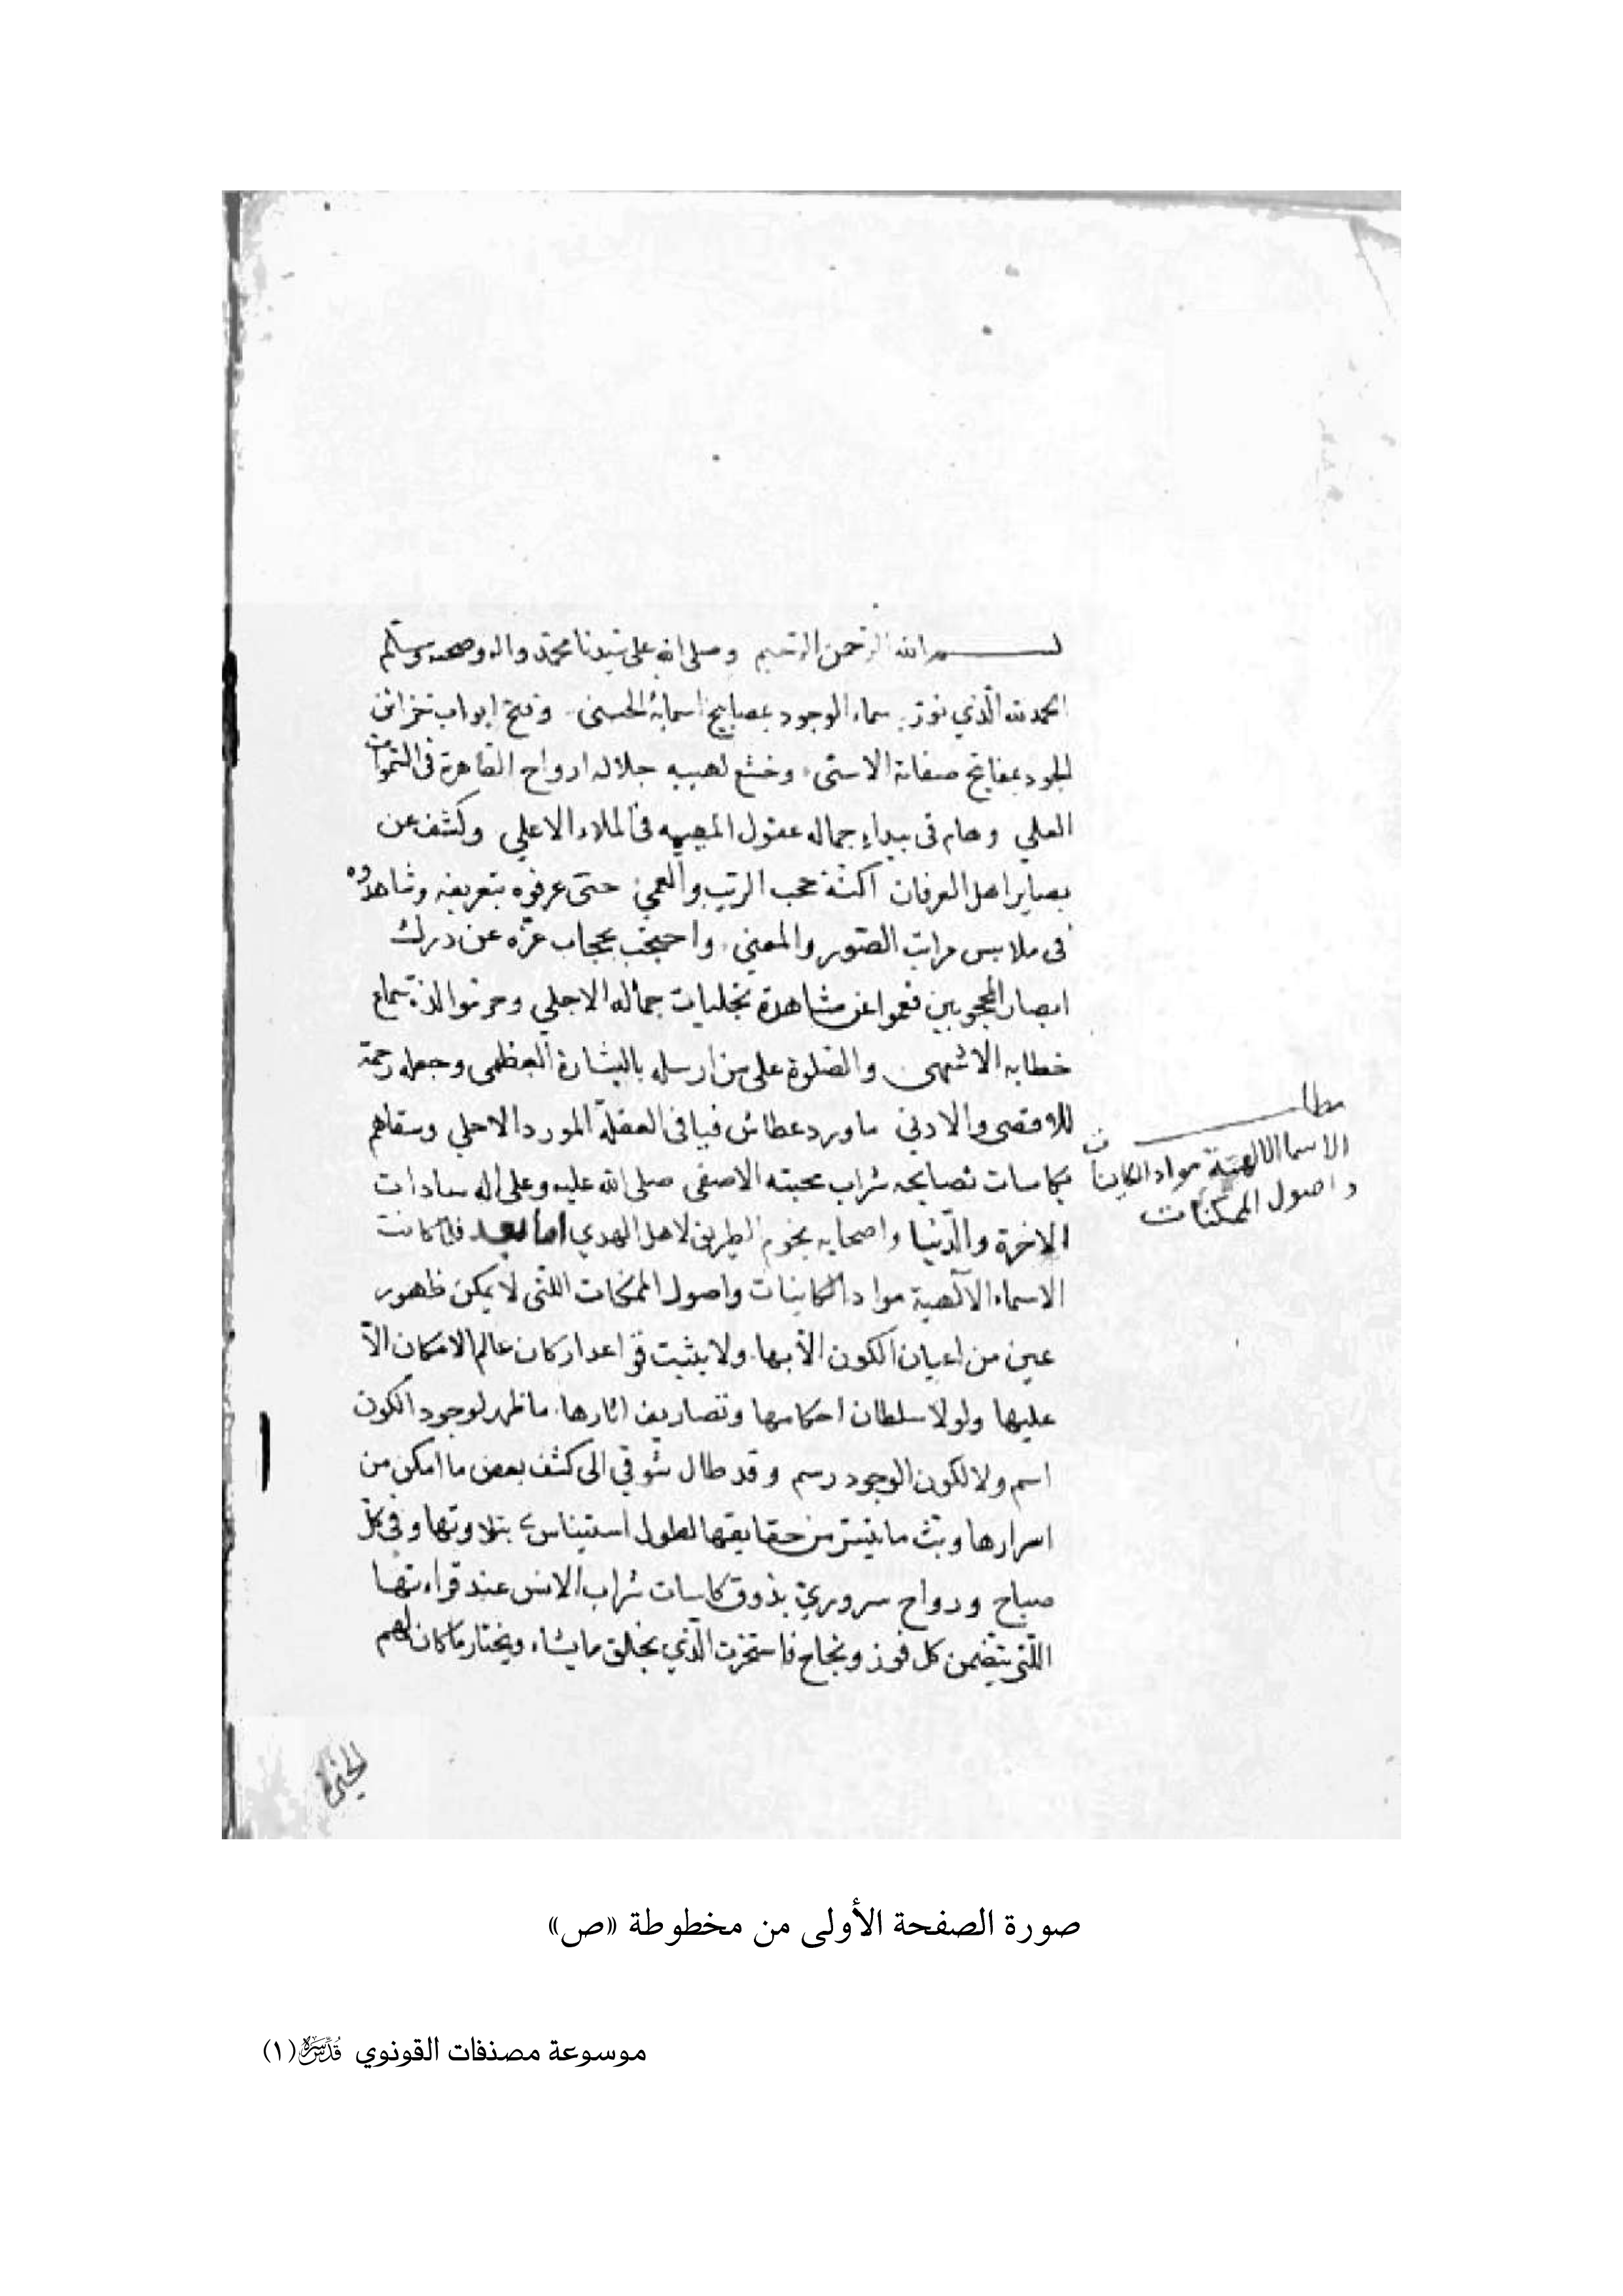 بسم الله الرحمن الرحيم وصلى الله على سيدنا محمد واله وصحبه وسلم
الحمد لله الّذي نوّر سماء الوجود بمصابيح اسمائه الحسنى وفتح ابواب خزائن
الجود بمفاتيح صفاته الاسنى وخشع لهيبه جلاله ارواح القاهرة فى السّموات
العلي وهام فى بيداء جماله عقول المهيمه فى الملاء الاعلي وكشف عن
بصاير اهل العرفان اكنّة حجب الريب والعمي حتى عرفوه بتعريفه وشاهدوه
فى ملابس مراتب الصّور والمعنى واحتجب بحجاب عزّه عن درك
ابصار المحجوبين فعموا عن مشاهدة تجليات جماله الاجلي وحرموا لذة سماع
خطابه الاشهى والصّلوة على من ارسله بالبشارة العظمى وجعله رحمة
للاقصى والادنى ما ورد عطاش فيافى العقلة المورد الاحلي وسقاهم
بكاسات نصايحه شراب محبته الاصفى صلى الله عليه وعلى اله سادات
الاخرة والدّنيا واصحابه نجوم الطريق لاهل الهدي اما بعد فلما كانت
الاسماء الآلهية مواد الكاينات واصول الممكنات اللتى لا يمكن ظهور
عين من اعيان الكون الّا بها ولا يثبت قواعد اركان عالم الامكان الّا
عليها ولولا سلطان احكامها وتصاريف اثارها ما ظهر لوجود الكون
اسم ولا لكون الوجود رسم وقد طال شوقي الى كشف بعض ما امكن من
اسرارها وبثّ ما تيسّر من حقايقها لطول استيناسي بتلاوتها وفى كل
صباح ورواح سروري بذوق كاسات شراب الانس عند قراءتها
اللّتى يتضمن كل فوز ونجاح فاستخرت الّذي يخلق ما يشاء ويختار ما كان لهم
الخيرة
مطلب
الاسما الالهيّة مواد الكاينات
واصول الممكنات
صورة الصفحة الأولى من مخطوطة «ص»
موسوعة مصنفات القونوي قُدِّسَ سِرُّهُ (١)